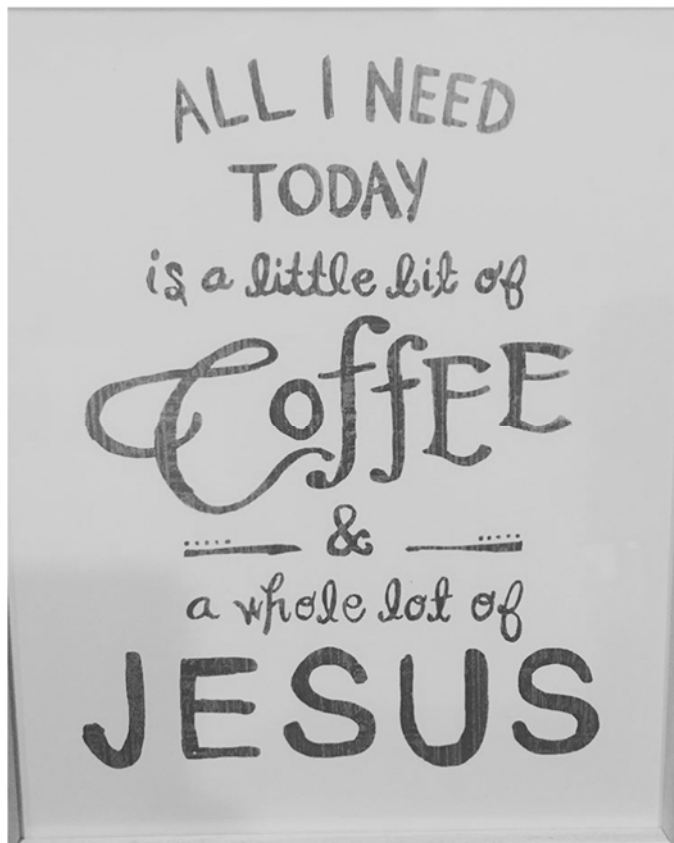 ALL I NEED
TODAY
is a little bit of
CoffEE
&
a whole lot of
JESUS